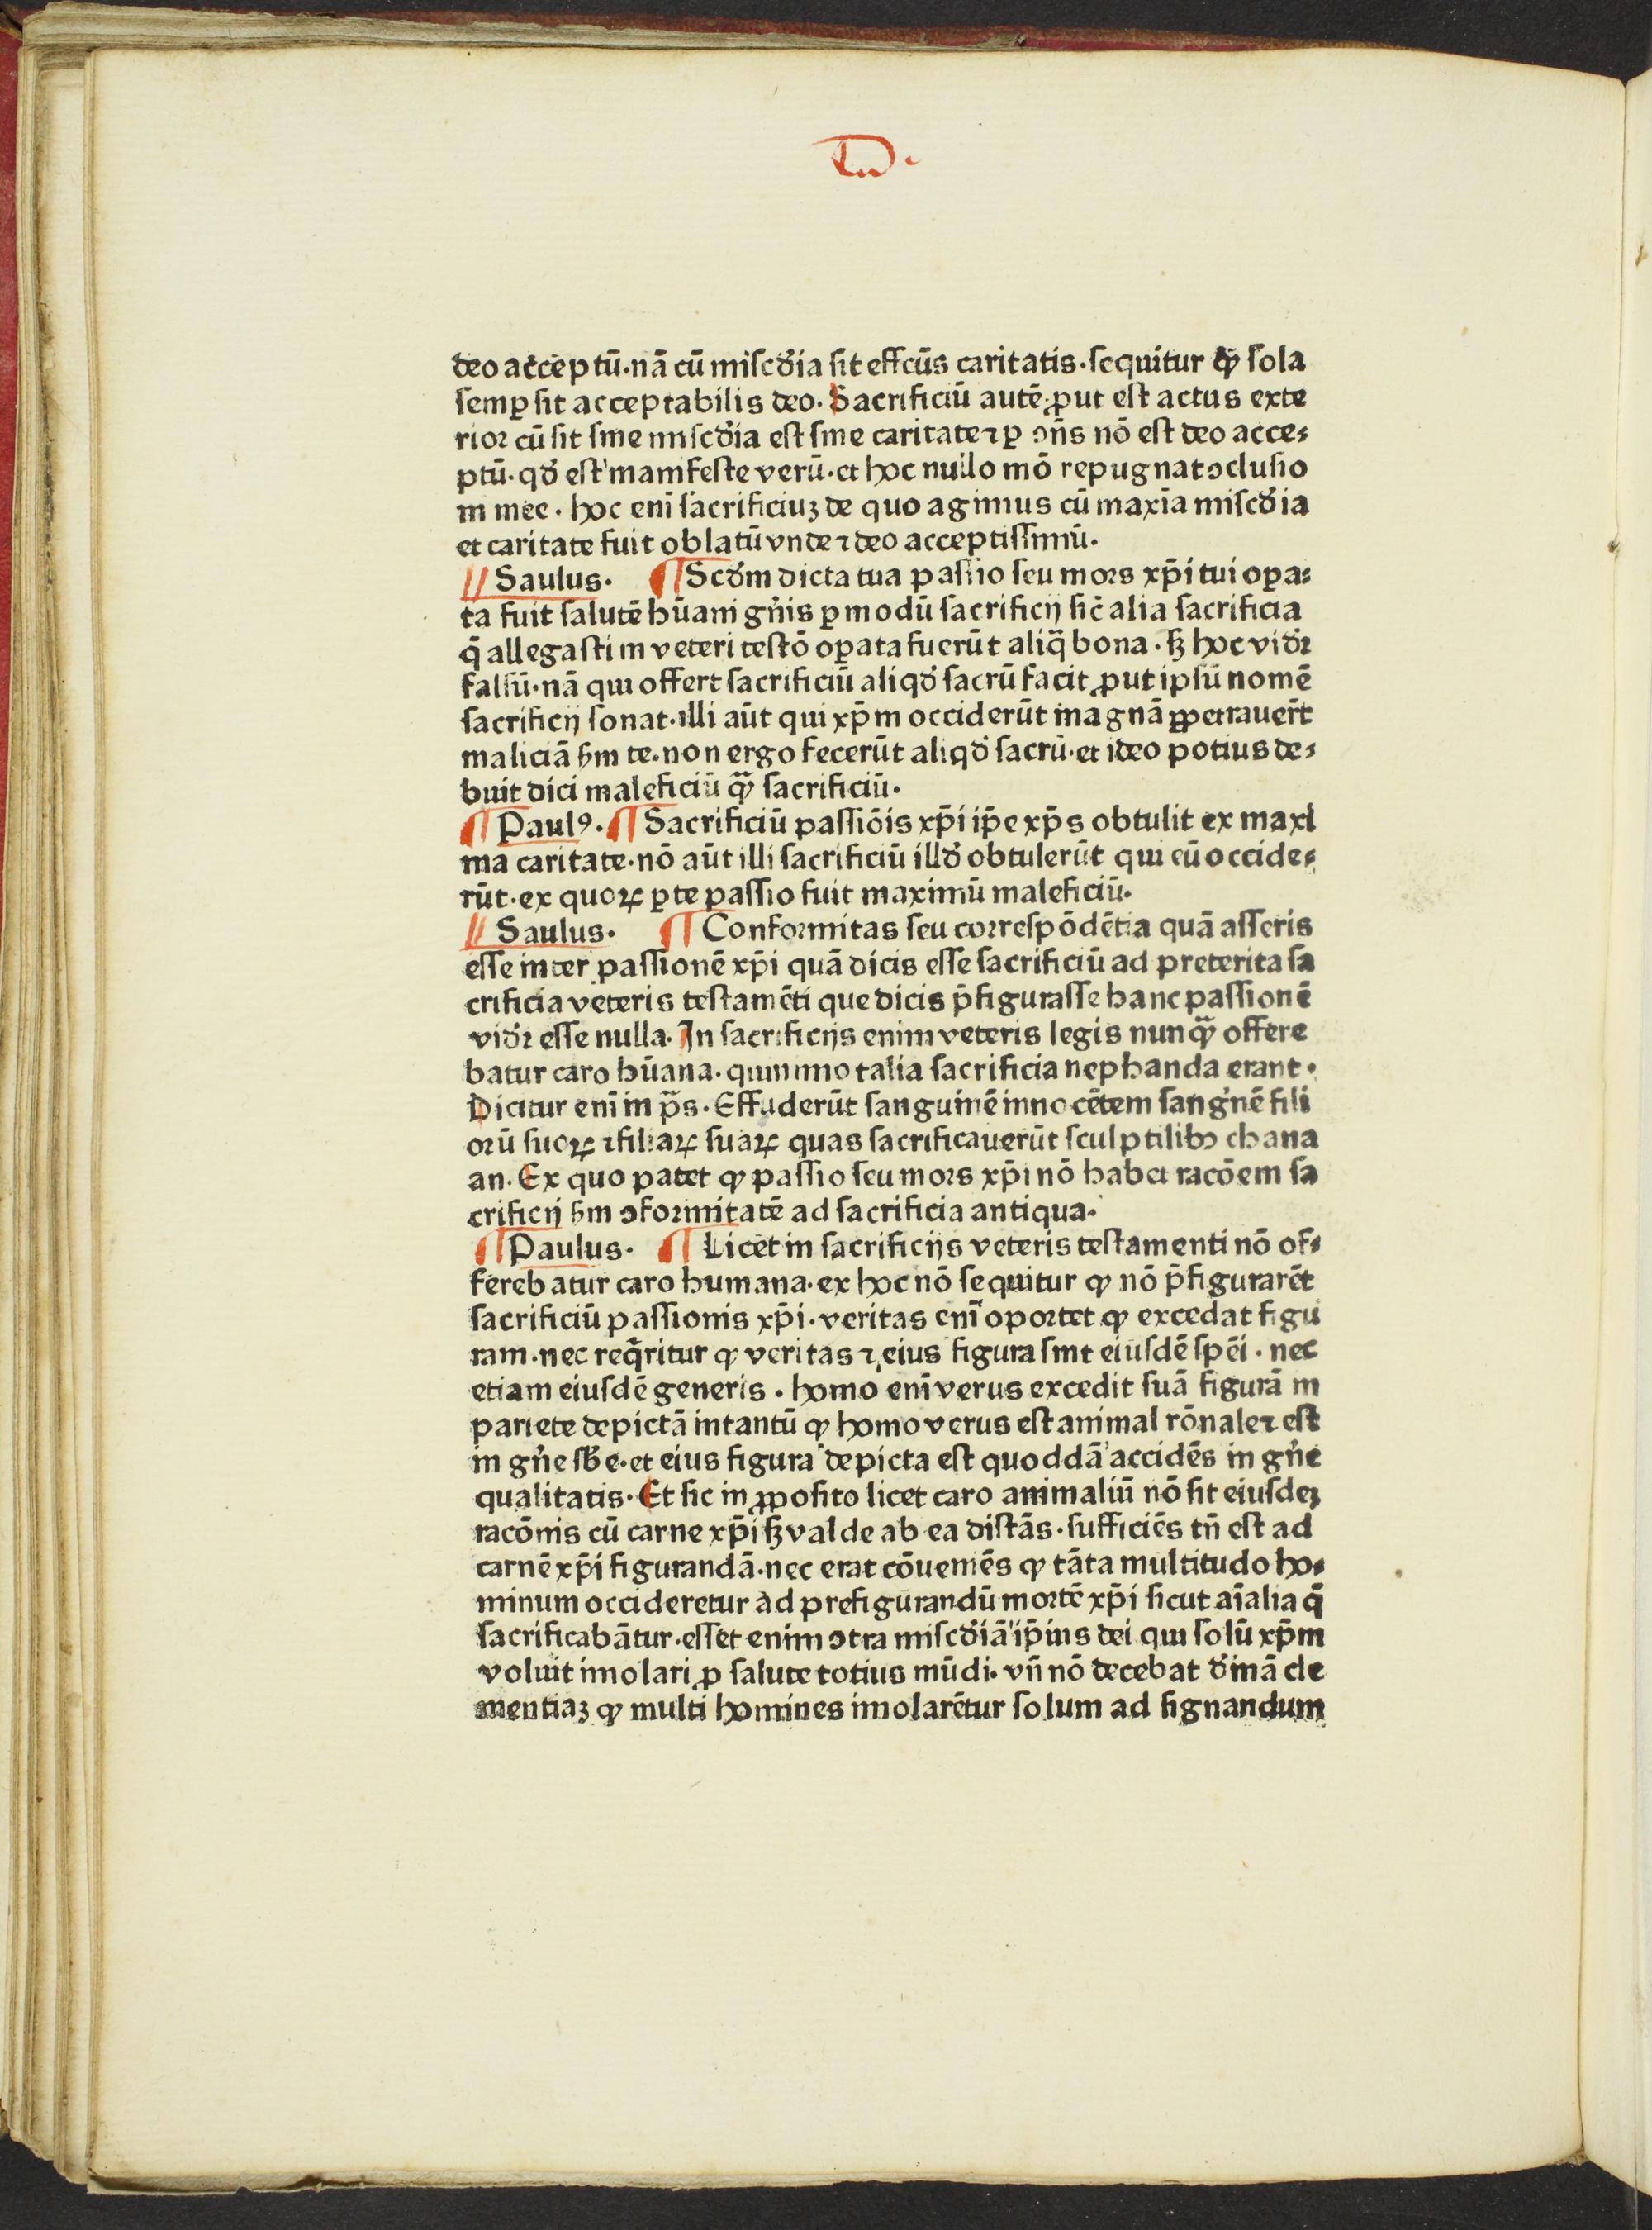 deo acceptū·nā cū miſcd̄ia ſit effcūs caritatis·ſequitur qꝫ ſola
ſemꝑ ſit acceptabilis deo· Sacrificiū autē ꝓut eſt actus exte
rioꝛ cū ſit ſine miſcd̄ia eſt ſine caritate ⁊ ꝑ ↄn̄s nō eſt deo acce⸗
ptū· qd̄ eſt manifeſte verū· et hoc nullo mō repugnat ↄcluſio
ni mee· hoc enī ſacrificiuꝫ de quo agimus cū maxīa miſcd̄ia
et caritate fuit oblatū vnde ⁊ deo acceptiſſimū·
Saulus· ¶ Scd̄m dicta tua paſſio ſeu mors xp̄i tui oꝑa⸗
ta fuit ſalutē hūani gn̄is ꝑ modū ſacrificij ſic̄ alia ſacrificia
q̄ allegaſti in veteri teſtō oꝑata fuerūt aliq̄ bona· ſꝫ hoc vid̄ꝛ
falſū·nā qui offert ſacrificiū aliqd̄ ſacrū facit ꝓut ipſū nomē
ſacrificij ſonat·illi aūt qui xp̄m occiderūt magnā ꝑpetrauer̄t
maliciā ẜm te·non ergo fecerūt aliqd̄ ſacrū·et ideo potius de⸗
buit dici maleficiū qᷓꝫ ſacrificiū·
¶ Paulꝰ· ¶ Sacrificiū paſſiōis xp̄i ip̄e xp̄s obtulit ex maxi
ma caritate·nō aūt illi ſacrificiū illd̄ obtulerūt qui eū occide⸗
rūt·ex quoꝝ ꝑte paſſio fuit maximū maleficiū·
Saulus· ¶ Confoꝛmitas ſeu coꝛreſpōdētia quā aſſeris
eſſe inter paſſionē xp̄i quā dicis eſſe ſacrificiū ad preterita ſa
crificia veteris teſtamēti que dicis p̄figuraſſe hanc paſſionē
vid̄ꝛ eſſe nulla· In ſacrificijs enim veteris legis nunqᷓꝫ offere
batur caro hūana·quinimo talia ſacrificia nephanda erant·
Dicitur enī in pᷓs· Effuderūt ſanguinē innocētem ſangn̄ē fili
oꝛū ſuoꝝ ⁊ filiaꝝ ſuaꝝ quas ſacrificauerūt ſculptilibꝫ chana
an· Ex quo patet ꝙ paſſio ſeu mors xp̄i nō habet racōem ſa
crificij ẜm ↄfoꝛmitatē ad ſacrificia antiqua·
¶ Paulus· ¶ Licet in ſacrificijs veteris teſtamenti nō of⸗
ferebatur caro humana·ex hoc nō ſequitur ꝙ nō p̄figurarēt
ſacrificiū paſſionis xp̄i·veritas enī opoꝛtet ꝙ excedat figu
ram·nec req̄ritur ꝙ veritas ⁊ eius figura ſint eiuſdē ſpēi·nec
etiam eiuſdē generis· homo enī verus excedit ſuā figurā in
pariete depictā intantū ꝙ homo verus eſt animal rōnale ⁊ eſt
in gn̄e ſb̄e·et eius figura depicta eſt quoddā accidēs in gn̄e
qualitatis· Et ſic in ꝓpoſito licet caro animaliū nō ſit eiuſdeꝫ
racōnis cū carne xp̄i ſꝫ valde ab ea diſtās·ſufficiēs tn̄ eſt ad
carnē xp̄i figurandā·nec erat cōueniēs ꝙ tāta multitudo ho⸗
minum occideretur ad prefigurandū moꝛtē xp̄i ſicut aīalia q̄
ſacrificabātur·eſſet enim ↄtra miſcd̄iā ip̄ius dei qui ſolū xp̄m
voluit imolari ꝓ ſalute totius mūdi·vn̄ nō decebat d̄inā cle
mentiaꝫ ꝙ multi homines imolarētur ſolum ad ſignandum